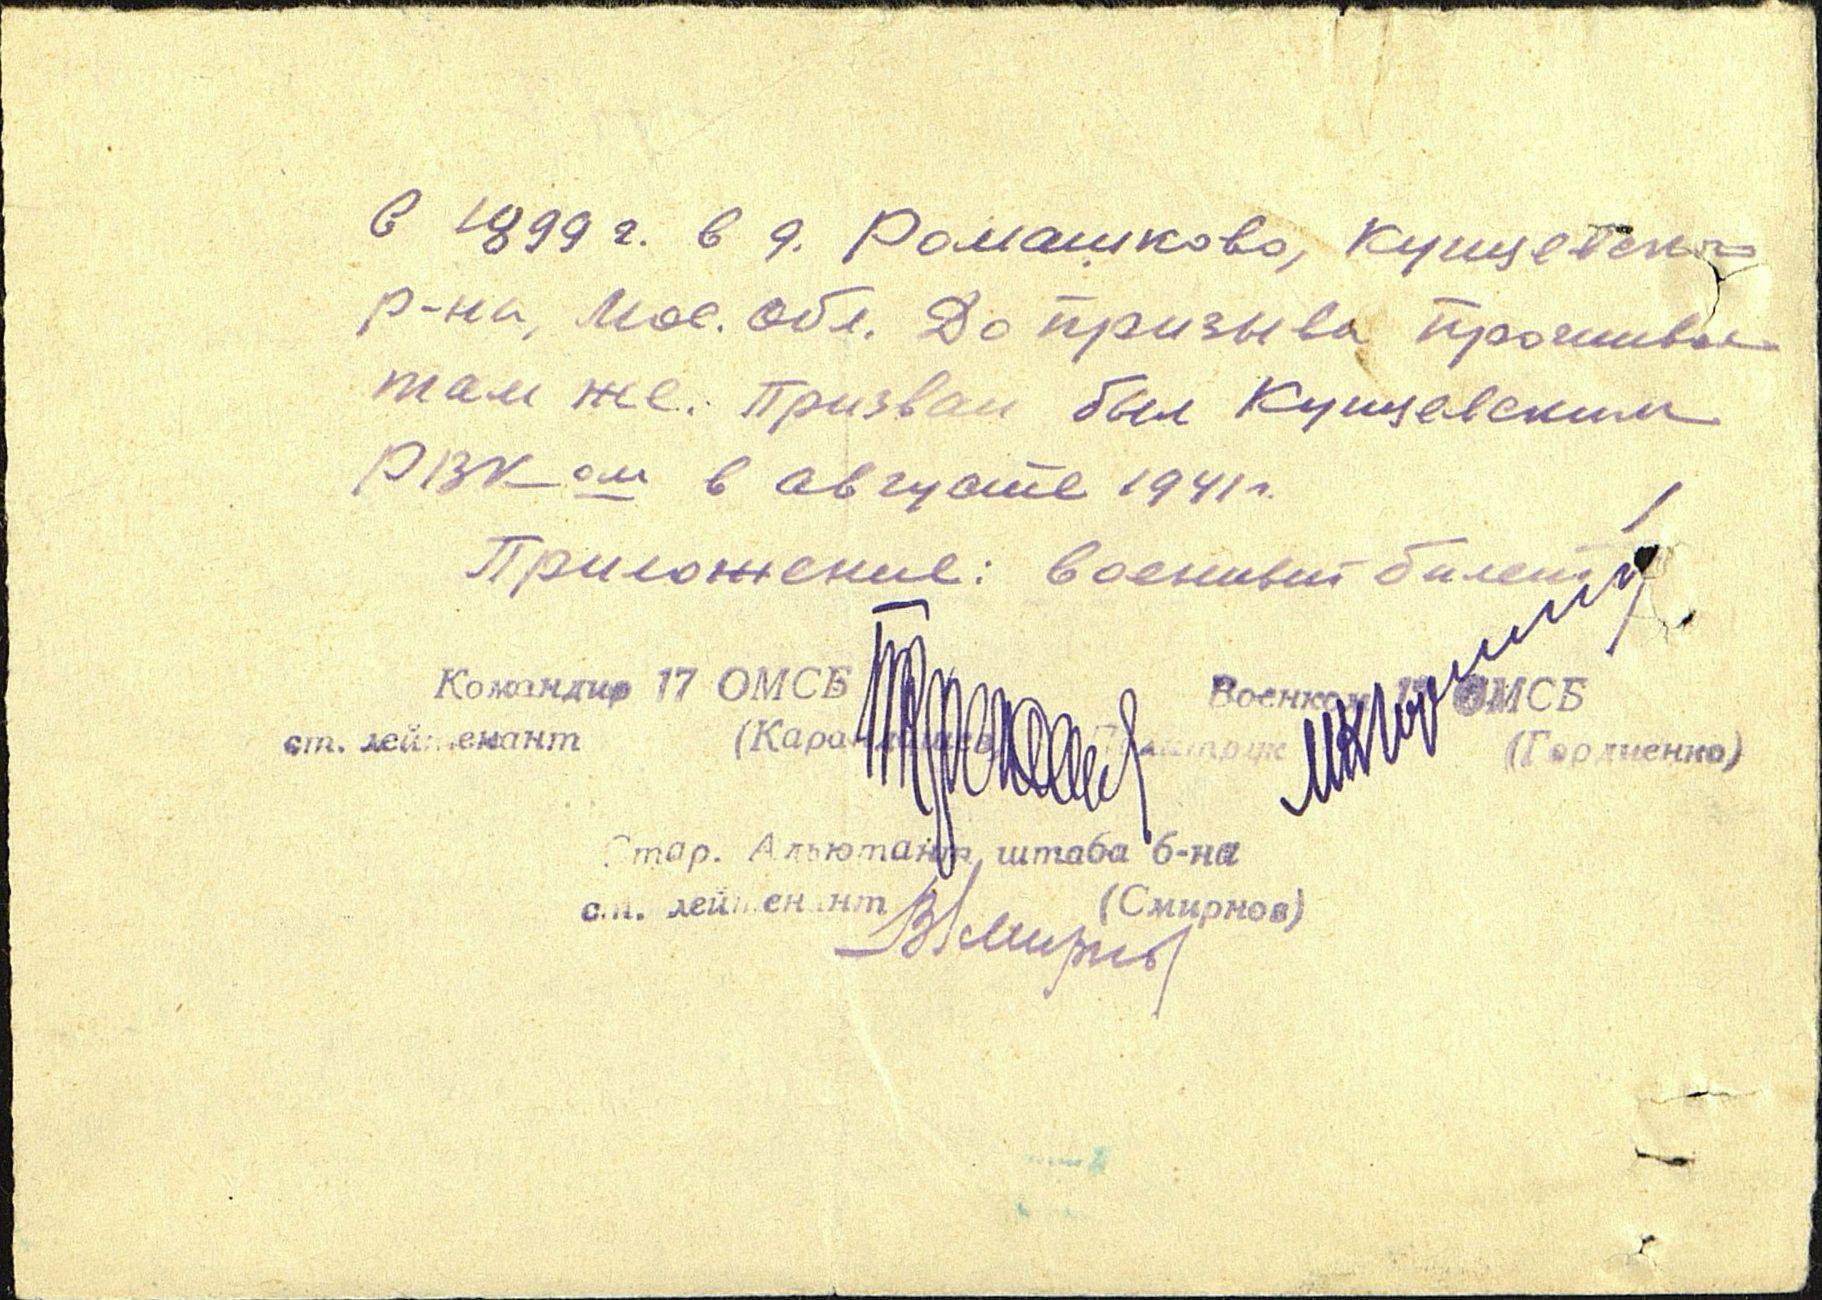 в 1899 г. в д. Ромашково, Кунцевского
р-на, Мос. обл. До призыва проживал
там же. Призван был Кунцевским
РВК-ом в августе 1941 г.
Приложение: военный билет
Командир 17 ОМСБ Военком 17 ОМСБ
ст. лейтенант (Карандашев) Политрук (Гордиенко)
Стар. Адъютант штаба б-на
ст. лейтенант (Смирнов)